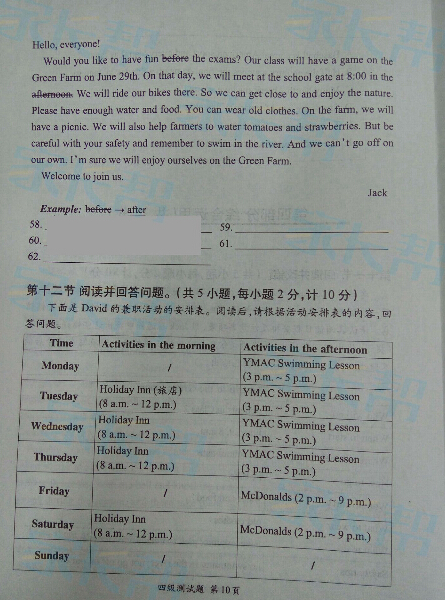 Hello, everyone!
Would you like to have fun before the exams? Our class will have a game on the
Green Farm on June 29th. On that day, we will meet at the school gate at 8:00 in the
afternoon. We will ride our bikes there. So we can get close to and enjoy the nature.
Please have enough water and food. You can wear old clothes. On the farm, we will
have a picnic. We will also help farmers to water tomatoes and strawberries. But be
careful with your safety and remember to swim in the river. And we can't go off on
our own. I'm sure we will enjoy ourselves on the Green Farm.
Welcome to join us.
Jack
Example: before → after
58. 59.
60. 61.
62.
第十二节 阅读并回答问题。(共5小题,每小题2分,计10分)
下面是 David 的兼职活动的安排表。阅读后,请根据活动安排表的内容,回
答问题。
Time Activities in the morning Activities in the afternoon
Monday / YMAC Swimming Lesson
(3 p.m. ~ 5 p.m.)
Tuesday Holiday Inn (旅店) YMAC Swimming Lesson
(8 a.m. ~ 12 p.m.) (3 p.m. ~ 5 p.m.)
Wednesday Holiday Inn YMAC Swimming Lesson
(8 a.m. ~ 12 p.m.) (3 p.m. ~ 5 p.m.)
Thursday Holiday Inn YMAC Swimming Lesson
(8 a.m. ~ 12 p.m.) (3 p.m. ~ 5 p.m.)
Friday / McDonalds (2 p.m. ~ 9 p.m.)
Saturday Holiday Inn McDonalds (2 p.m. ~ 9 p.m.)
(8 a.m. ~ 12 p.m.)
Sunday / /
四级测试题 第10页